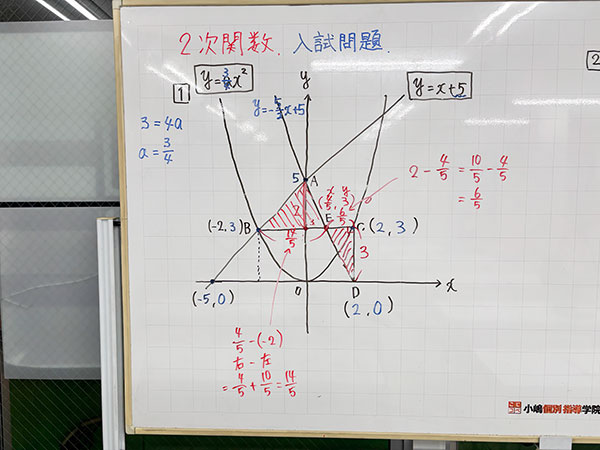 2次関数. 入試問題.
2
1
y=3/4x²
y=-5/2x+5
y
y=x+5
3=4a
a=3/4
5
A
2
x y
(4/5, 3)
2 - 4/5 = 10/5 - 4/5
= 6/5
(-2,3) B
3
E
6/5
C (2,3)
14/5
3
(-5,0)
0
D
x
(2,0)
4/5 - (-2)
右 - 左
= 4/5 + 10/5 = 14/5
小嶋個別指導学院